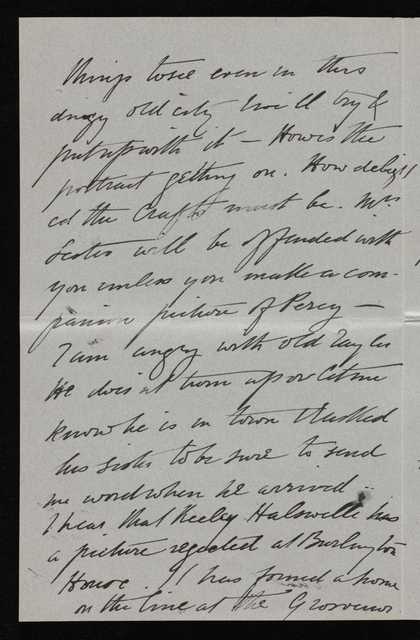 things to see even in this
dingy old city & will try &
put up with it – How is the
portrait getting on. How delight
ed the Crafts must be. Mrs
will be offended with
you unless you make a com-
panion picture of Percy –
I am angry with old Taylor
He does not turn up or let me
know he is in town & I asked
his sister to be sure to send
me word when he arrived –
I hear that Keeley Halswelle has
a picture rejected at Burlington
House. It has found a home
on the line at the Grosvenor